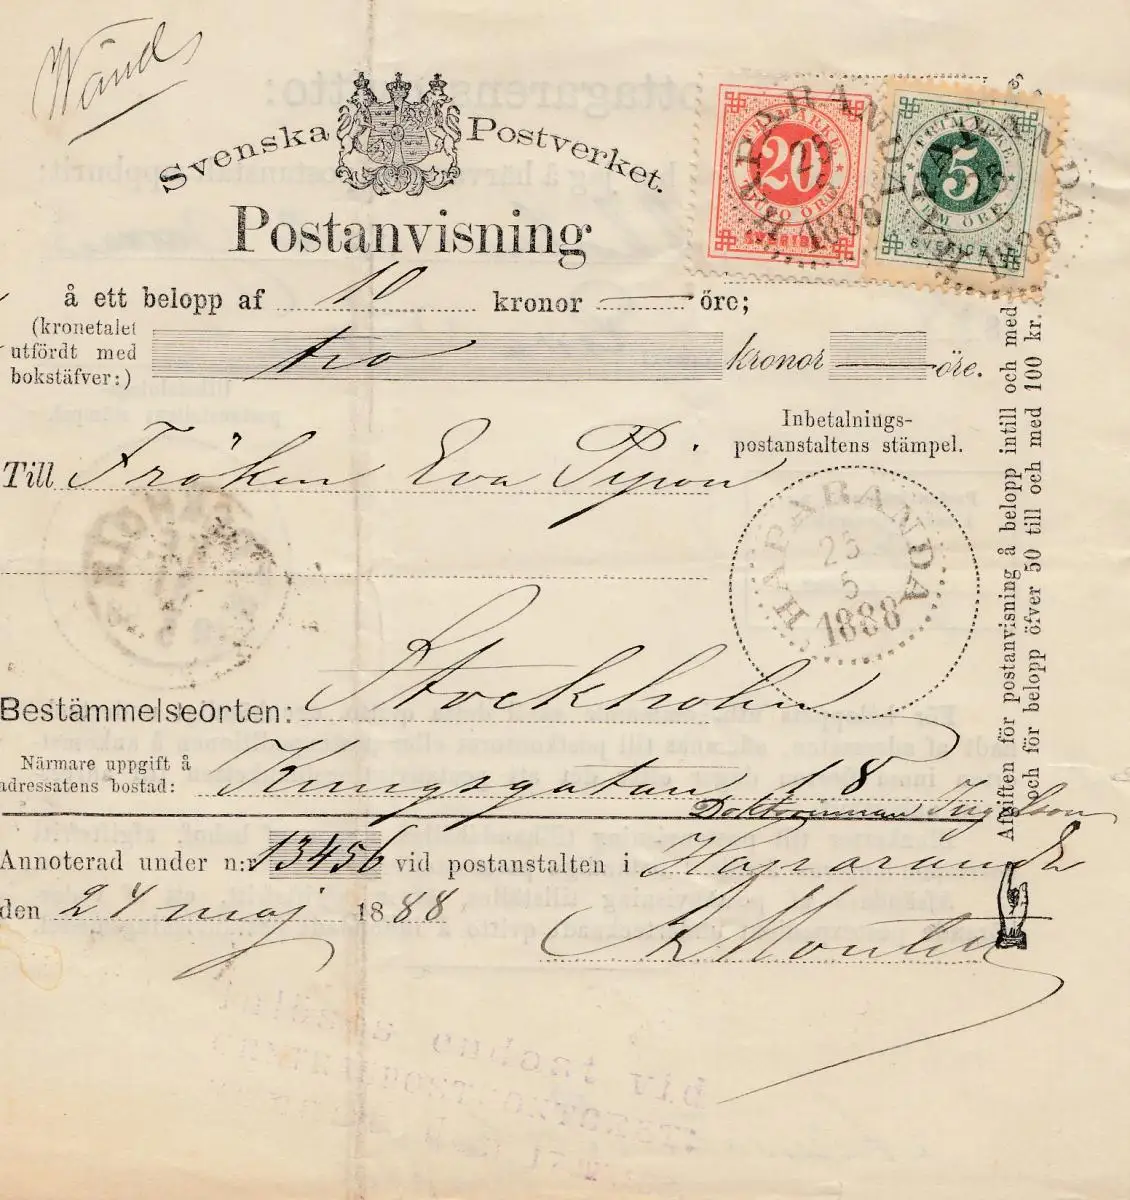 Wänd
Svenska Postverket.
Postanvisning
å ett belopp af 10 kronor öre;
(kronetalet
utfördt med
bokstäfver:)
tio kronor öre.
FRIMÄRKE
20
TJUGO ÖRE
SVERIGE
HAPARANDA
25
5
1888
FRIMÄRKE
5
FEM ÖRE
SVERIGE
HAPARANDA
25
5
1888
Inbetalnings-
postanstaltens stämpel.
Till Fröken Eva Pijon
HAPARANDA
25
5
1888
Bestämmelseorten: Stockholm
Närmare uppgift å
adressatens bostad: Kungsgatan 18
Doktorinnan
Annoterad under n:r 13456 vid postanstalten i Haparanda
den 24 maj 1888
Afgiften för postanvisning å belopp intill och med
och för belopp öfver 50 till och med 100 kr.